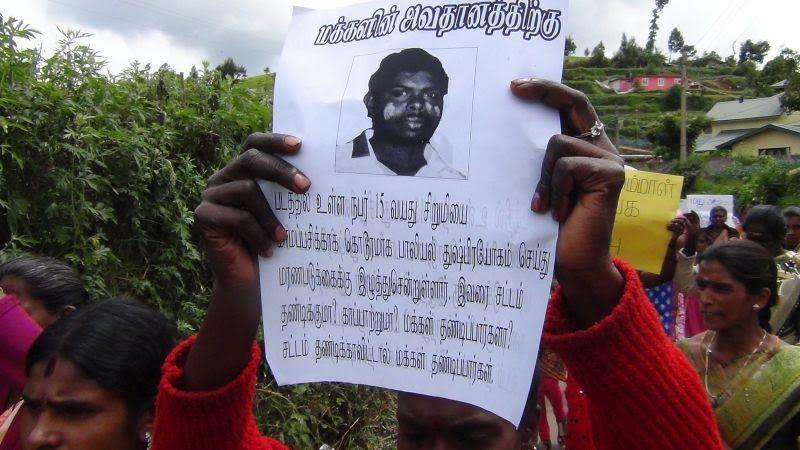 மக்களின் அவதானத்திற்கு
படத்தில் உள்ள நபர் 15 வயது சிறுமியை
காமப்பசிக்காக கொடூரமாக பாலியல் துஷ்பிரயோகம் செய்து
மரணபடுக்கைக்கு இழுத்துசென்றுள்ளார். இவரை சட்டம்
தண்டிக்குமா? காப்பாற்றுமா? மக்கள் தண்டிப்பார்களா?
சட்டம் தண்டிக்காவிட்டால் மக்கள் தண்டிப்பார்கள்